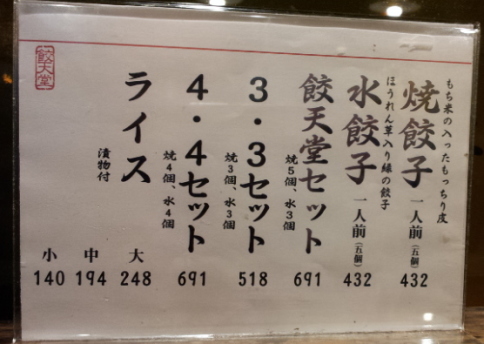 もち米の入ったもっちり皮
焼餃子 一人前(五個) 432
ほうれん草入り緑の餃子
水餃子 一人前(五個) 432
餃天堂セット 691
焼5個、水3個
3・3セット 518
焼3個、水3個
4・4セット 691
焼4個、水4個
ライス 大 248
漬物付 中 194
小 140
餃天堂